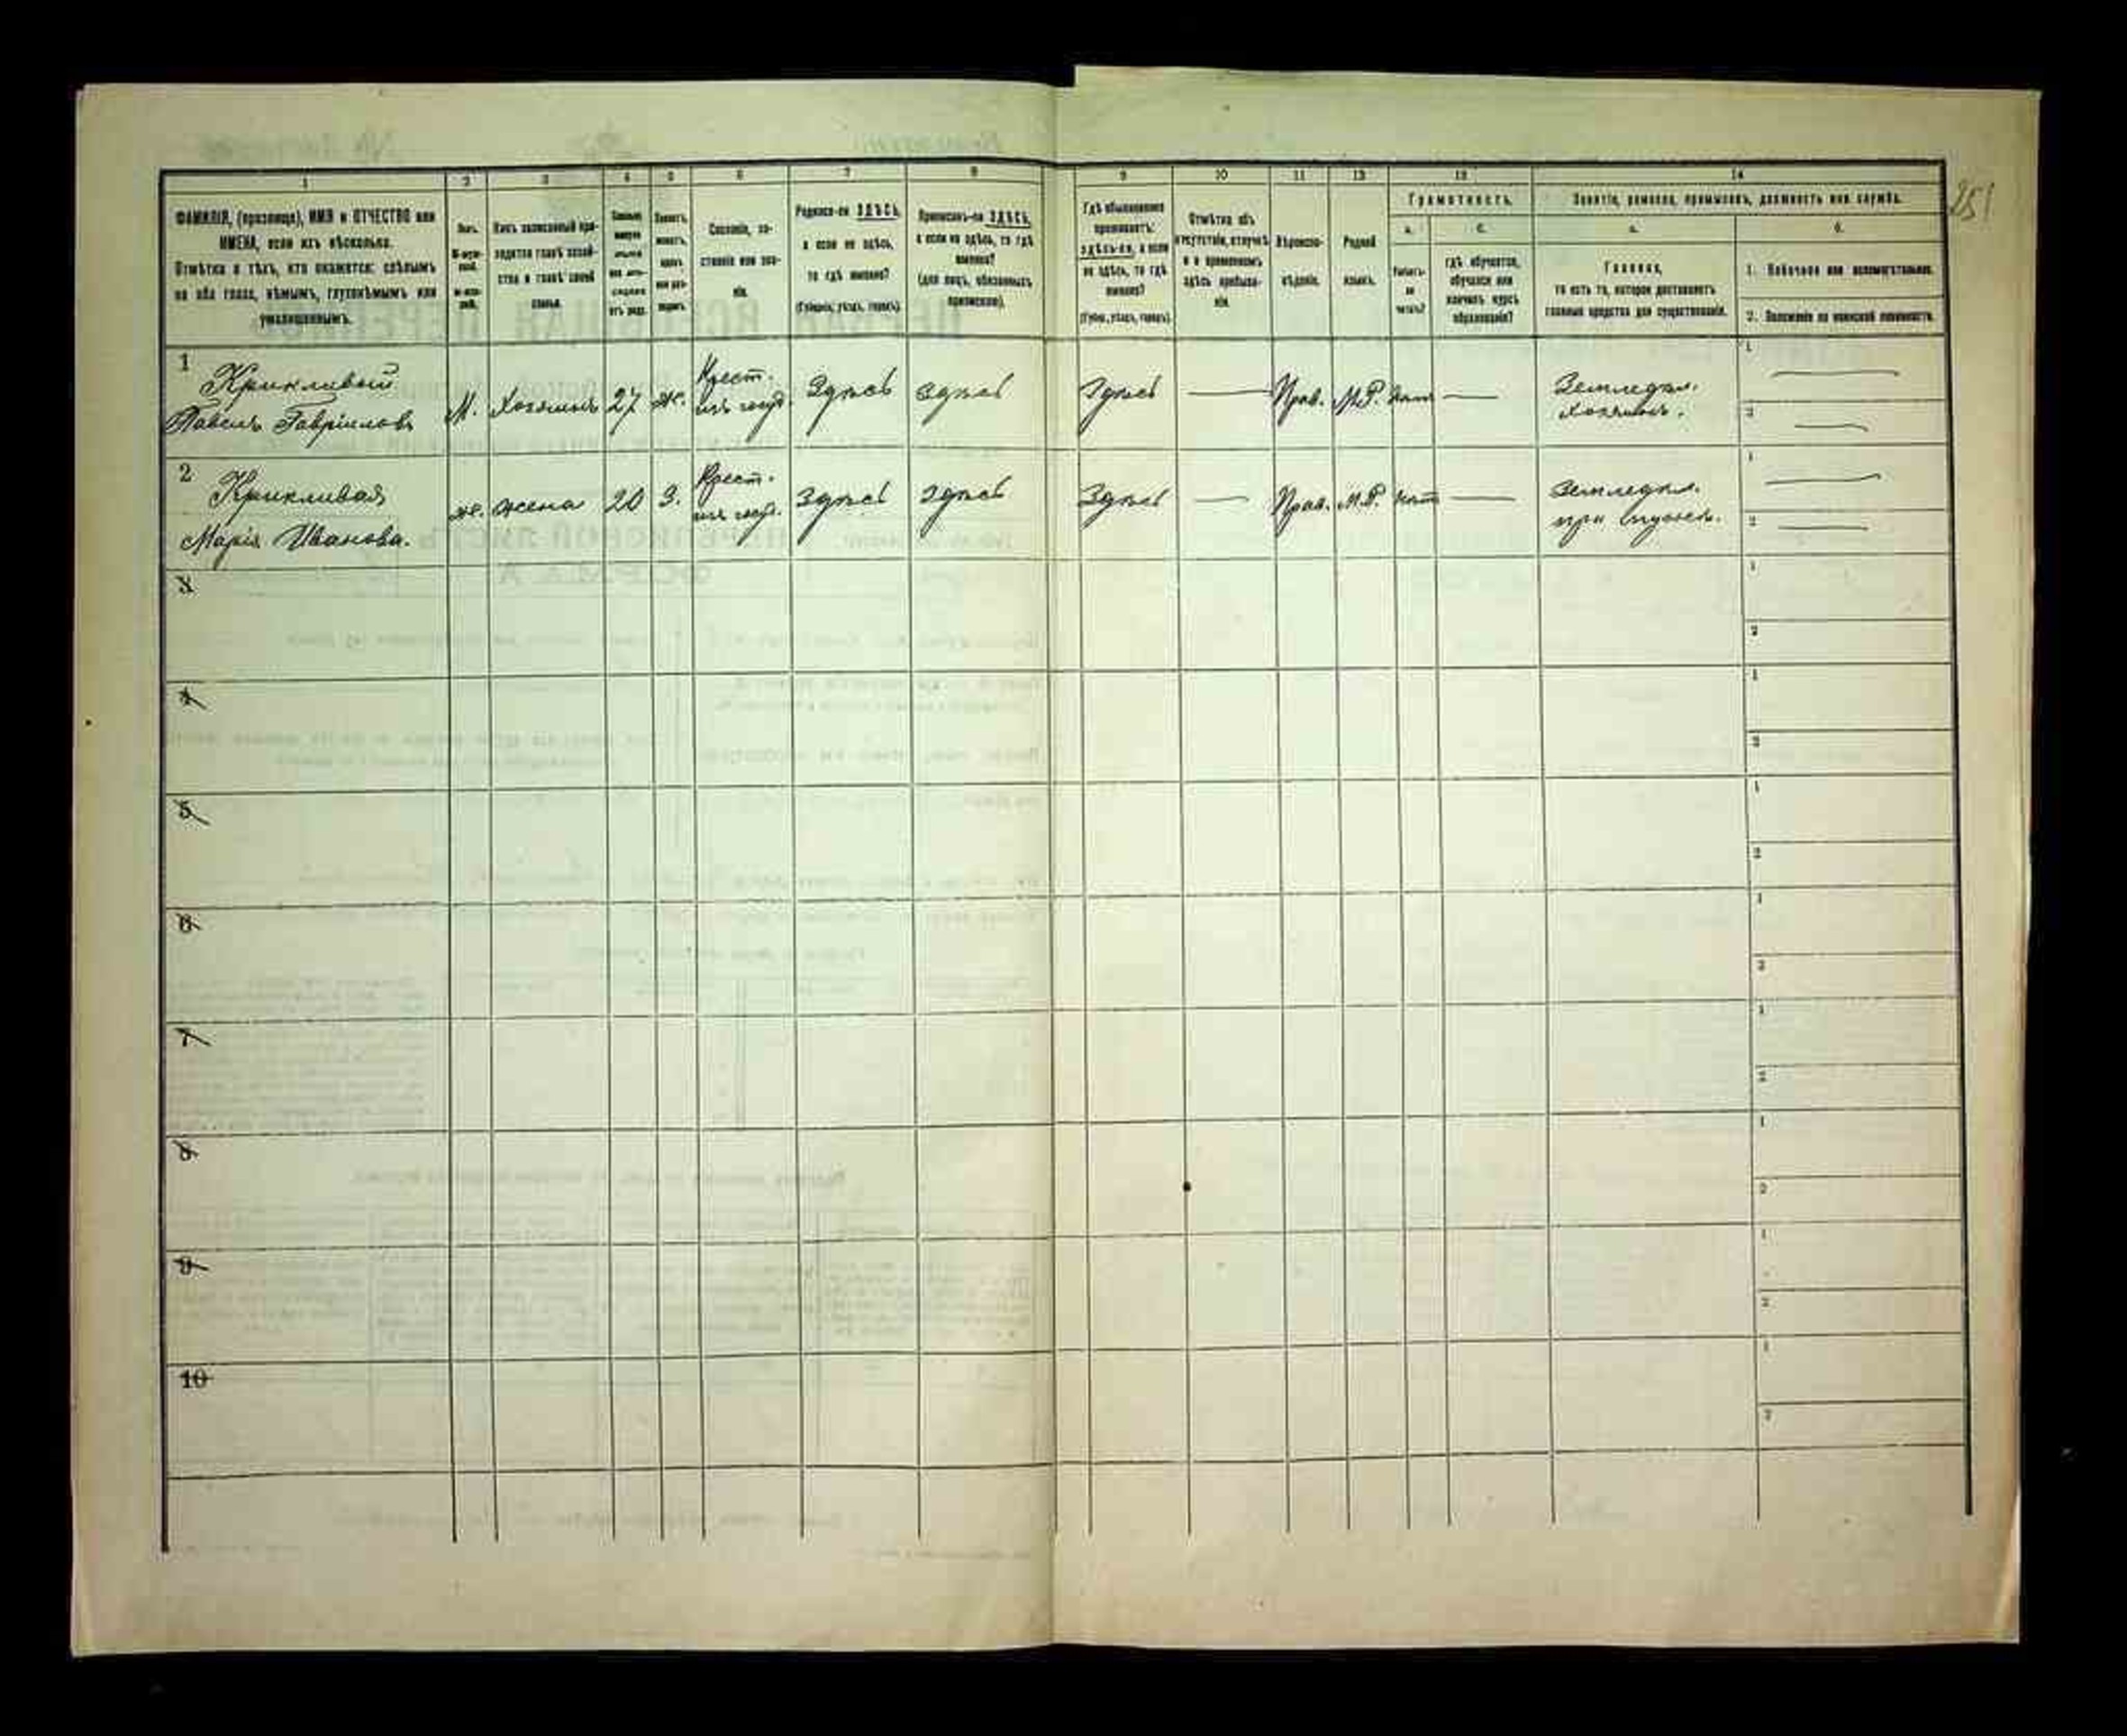 251
1 2 3 4 5 6 7 8 9 10 11 12 13 14
ФАМИЛІЯ, (прозвище), ИМЯ и ОТЧЕСТВО или
ИМЕНА, если ихъ нѣсколько.
Отмѣтка о тѣхъ, кто окажется: слѣпымъ
на оба глаза, нѣмымъ, глухонѣмымъ или
умалишеннымъ.
Полъ.
М-муж-
ской.
ж-жен-
скій.
Какъ записанный при-
ходится главѣ хозяй-
ства и главѣ своей
семьи.
Сколько
минуло
лѣтъ
или мѣ-
сяцевъ
отъ роду.
Холостъ,
женатъ,
вдовъ
или раз-
веденъ.
Сословіе, со-
стояніе или зва-
ніе.
Родился-ли ЗДѢСЬ,
а если не здѣсь,
то гдѣ именно?
(Губернія, уѣздъ, городъ).
Приписанъ-ли ЗДѢСЬ,
а если не здѣсь, то гдѣ
именно?
(для лицъ, обязанныхъ
припискою).
Гдѣ обыкновенно
проживаетъ:
здѣсь-ли, а если
не здѣсь, то гдѣ
именно?
(Губерн., уѣздъ, городъ).
Отмѣтка объ
отсутствіи, отлучкѣ
и о временномъ
здѣсь пребыва-
ніи.
Вѣроиспо-
вѣданіе.
Родной
языкъ.
Грамотность.
а. б.
Умѣетъ-
ли
читать?
гдѣ обучается,
обучался или
кончилъ курсъ
образованія?
Занятіе, ремесло, промыселъ, должность или служба.
а. б.
Главное,
то есть то, которое доставляетъ
главныя средства для существованія.
1. Побочное или вспомогательное.
2. Положеніе по воинской повинности.
1 Крикливый
Павелъ Гавріиловъ
М. Хозяинъ 27 ж. Крест. изъ госуд. Здѣсь Здѣсь Здѣсь — Прав. М.Р. нѣт —
Земледѣл.
хозяинъ.
1
2
2 Крикливая
Марія Иванова.
ж. жена 20 З. Крест. изъ госуд. Здѣсь Здѣсь Здѣсь — Прав. М.Р. нѣт —
Земледѣл.
при мужѣ.
1
2
3
1
2
4
1
2
5
1
2
6
1
2
7
1
2
8
1
2
9
1
2
10
1
2